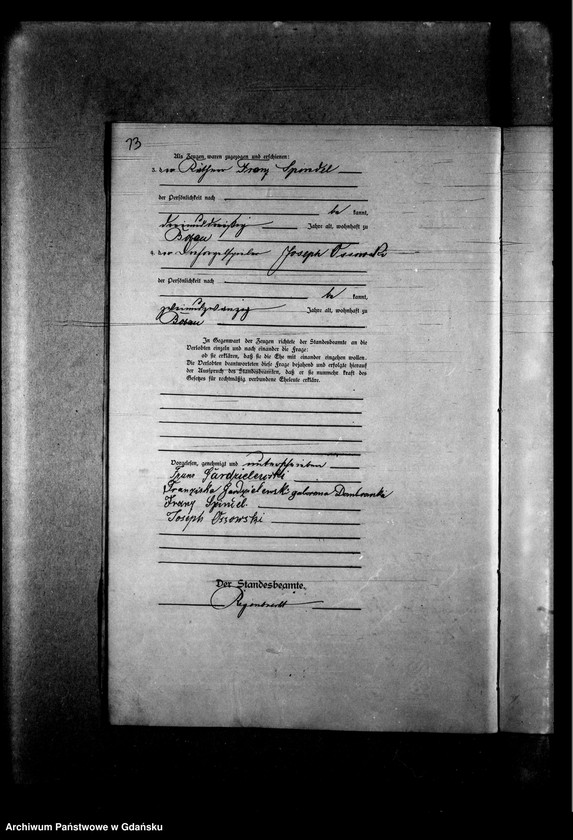 73
Als Zeugen waren zugezogen und erschienen:
3. der Käthner Franz Spendel
der Persönlichkeit nach
be kannt,
dreiunddreißig Jahre alt, wohnhaft zu
4. der Joseph Ossowski
der Persönlichkeit nach
be kannt,
zweiundzwanzig Jahre alt, wohnhaft zu
In Gegenwart der Zeugen richtete der Standesbeamte an die
Verlobten einzeln und nach einander die Frage:
ob sie erklären, daß sie die Ehe mit einander eingehen wollen.
Die Verlobten beantworteten diese Frage bejahend und erfolgte hierauf
der Ausspruch des Standesbeamten, daß er sie nunmehr kraft des
Gesetzes für rechtmäßig verbundene Eheleute erkläre.
Vorgelesen, genehmigt und unterschrieben
Franz Gardzielewski
Franziska Gardzielewski geborene
Franz
Joseph Ossowski
Der Standesbeamte.
Archiwum Państwowe w Gdańsku